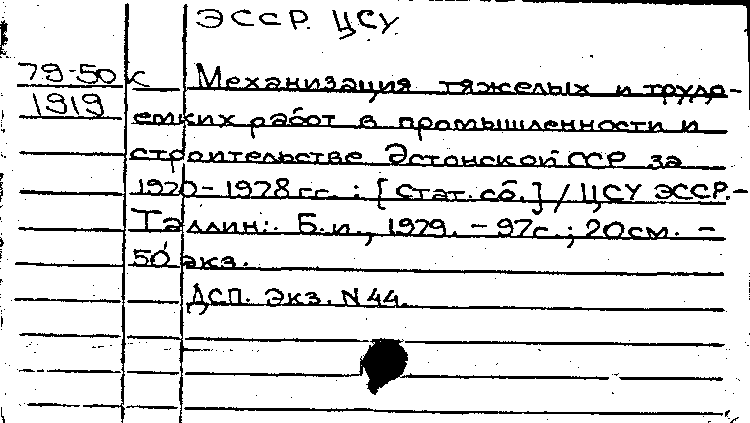 ЭССР. ЦСУ
79-50 к Механизация тяжелых и трудо-
1919 емких работ в промышленности и
строительстве Эстонской ССР за
1970-1978 гг. : [Стат. сб.] / ЦСУ ЭССР. -
Таллин: Б. и., 1979. - 97 с.; 20 см. -
50 экз.
ДСП. Экз. N 44.